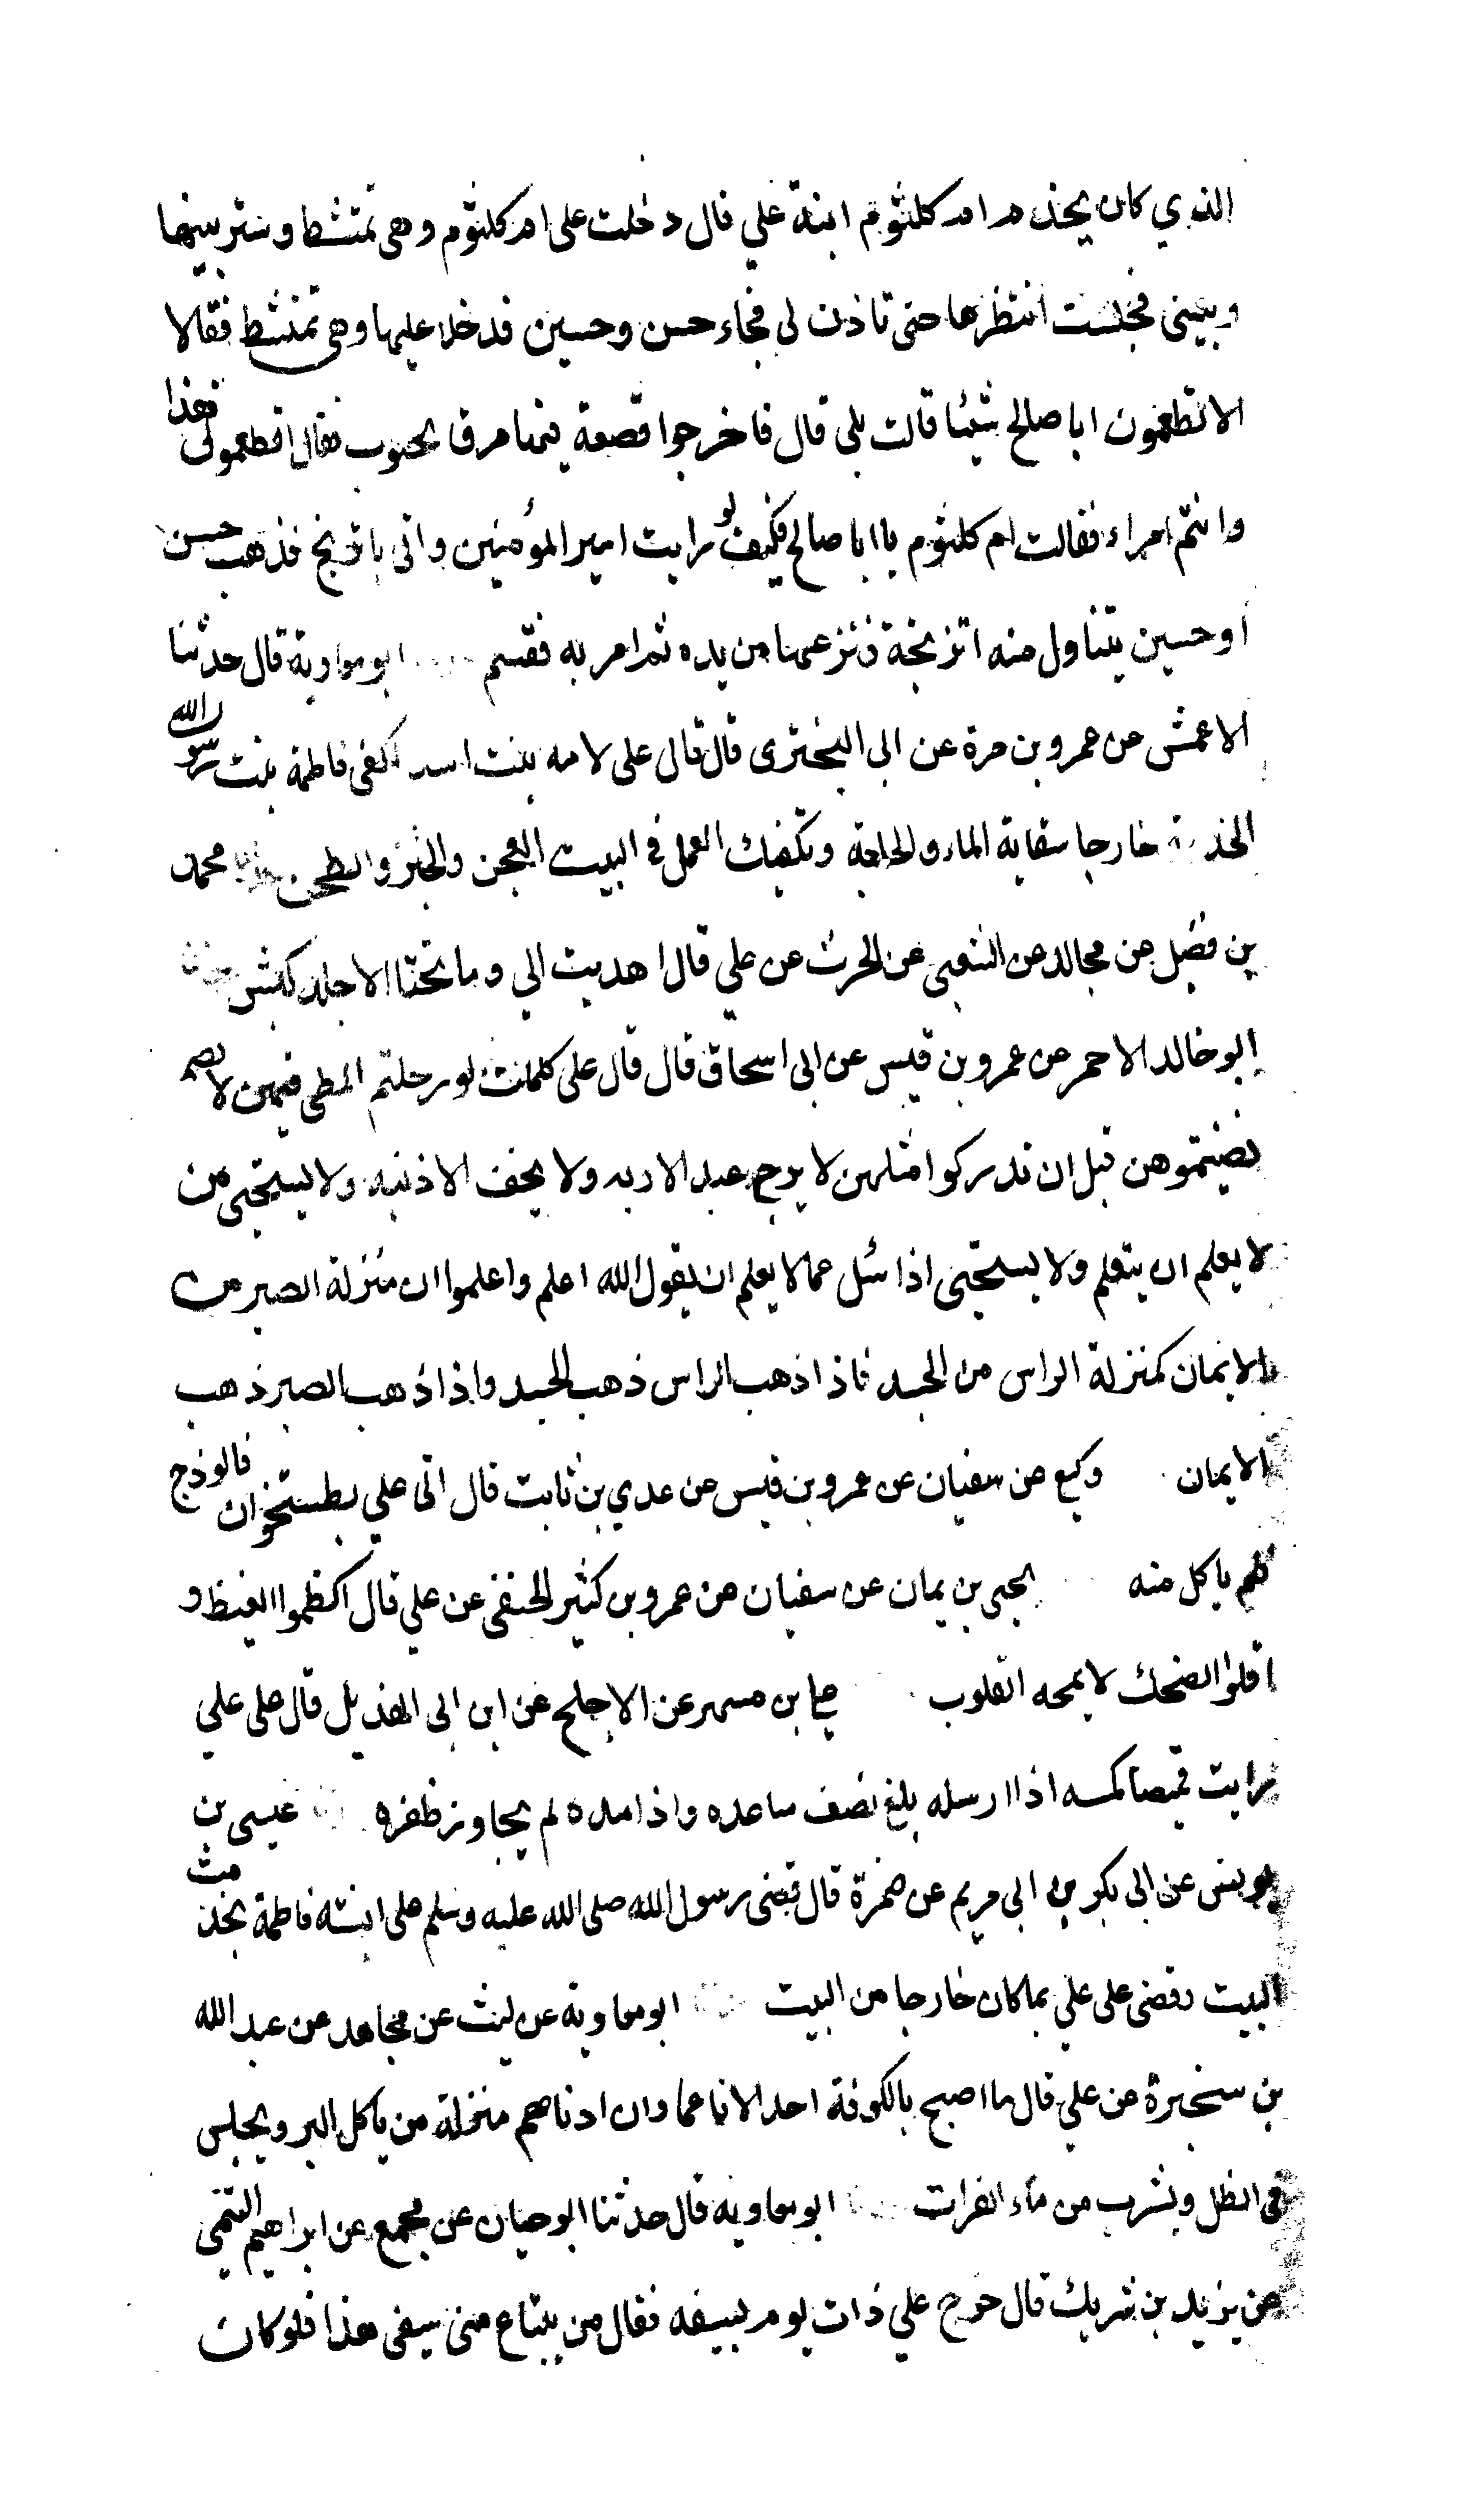 الذي كان يخدم ام كلثوم ابنة علي قال دخلت على ام كلثوم وهي تمتشط وستر بينها
وبيني فجلست انتظرها حتى تاذن لي فجاء حسن وحسين فدخلا عليها وهي تمتشط فقالا
الا تطعمون ابا صالح شيئا قالت بلى قال فاخرجوا قصعة فيها مرق بحبوب فقال اتطعموني هذا
وانتم امراء فقالت ام كلثوم يا ابا صالح فكيف لو رايت امير المؤمنين واتي باترنج فذهب حسن
او حسين يتناول منه اترنجة فنزعها من يده ثم امر به فقسم ابو معاوية قال حدثنا
الاعمش عن عمرو بن مرة عن ابي البختري قال قال علي لامه بنت اسد اكفي فاطمة بنت رسول الله
الخدمة خارجا سقاية الماء والحاجة وتكفيك العمل في البيت العجن والخبز والطحن محمد
بن فضيل عن مجالد عن الشعبي عن الحرث عن علي قال اهديت الي وما تحتنا الا جلد كبش
ابو خالد الاحمر عن عمرو بن قيس عن ابي اسحاق قال قال علي كلمات لو رحلتم المطي فيهن لا
نضيتموهن قبل ان تدركوا مثلهن لا يرج عبد الا ربه ولا يخف الا ذنبه ولا يستحيي من
لا يعلم ان يتعلم ولا يستحيي اذا سئل عما لا يعلم ان يقول الله اعلم واعلموا ان منزلة الصبر من
الايمان كمنزلة الراس من الجسد فاذا ذهب الراس ذهب الجسد واذا ذهب الصبر ذهب
الايمان وكيع عن سفيان عن عمرو بن قيس عن عدي بن ثابت قال اتى علي بطستخوان فالوذج
فلم ياكل منه يحيى بن يمان عن سفيان عن عمرو بن كثير الحنفي عن علي قال اكظموا الغيظ و
اقلوا الضحك لا يمحه القلوب علي بن مسهر عن الاجلح عن ابن ابي الهذيل قال على علي
رايت قميصا كمه اذا ارسله بلغ نصف ساعده واذا مده لم يجاوز ظفره عيسى بن
يونس عن ابي بكر بن ابي مريم عن ضمرة قال قضى رسول الله صلى الله عليه وسلم على ابنته فاطمة بخدمت
البيت وقضى على علي بما كان خارجا من البيت ابو معاوية عن ليث عن مجاهد عن عبد الله
بن سخبرة عن علي قال ما اصبح بالكوفة احد الا ناعما وان ادناهم منزلة من ياكل البر ويجلس
في الظل ويشرب من ماء الفرات ابو معاوية قال حدثنا ابو حيان عن مجمع عن ابراهيم التيمي
عن يزيد بن شريك قال خرج علي ذات يوم بسيفه فقال من يبتاع مني سيفي هذا فلو كان